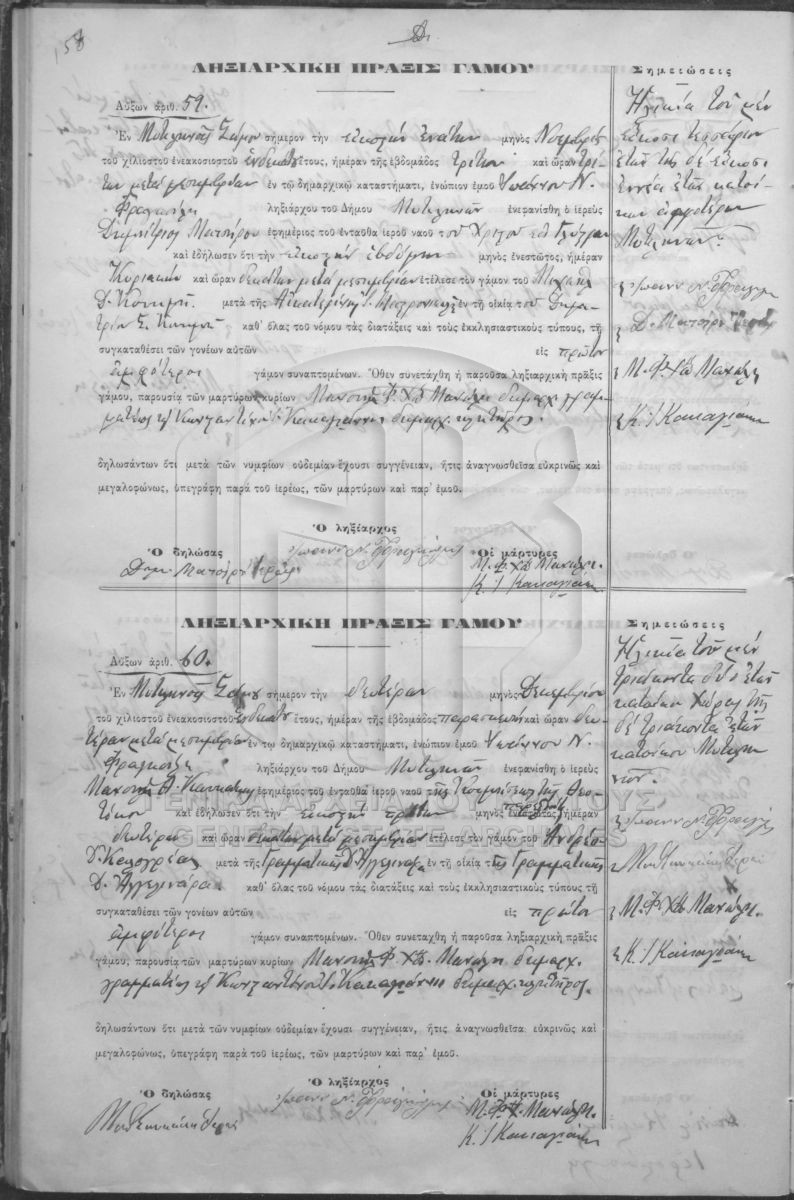 58
ΛΗΞΙΑΡΧΙΚΗ ΠΡΑΞΙΣ ΓΑΜΟΥ
Αὔξων ἀριθ. 59.
Ἐν Μυτιληνιοῖς Σάμου σήμερον τὴν εἰκοστὴν ἐνάτην μηνὸς Νοεμβρίου
τοῦ χιλιοστοῦ ἐνεακοσιοστοῦ ἑνδεκάτου ἔτους, ἡμέραν τῆς ἑβδομάδος τρίτην καὶ ὥραν τρί-
την μετὰ μεσημβρίαν ἐν τῷ δημαρχικῷ καταστήματι, ἐνώπιον ἐμοῦ Ἰωάννου Ν.
ληξιάρχου τοῦ Δήμου Μυτιληνιῶν ἐνεφανίσθη ὁ ἱερεὺς
Δημήτριος ἐφημέριος τοῦ ἐνταῦθα ἱεροῦ ναοῦ τοῦ
καὶ ἐδήλωσεν ὅτι τὴν εἰκοστὴν ἑβδόμην μηνὸς ἐνεστῶτος, ἡμέραν
Κυριακὴν καὶ ὥραν δεκάτην μετὰ μεσημβρίαν ἐτέλεσε τὸν γάμον τοῦ Μιχαὴλ
Δ. μετὰ τῆς Αἰκατερίνης ἐν τῇ οἰκίᾳ τοῦ Δημη-
τρίου καθ᾽ ὅλας τοῦ νόμου τὰς διατάξεις καὶ τοὺς ἐκκλησιαστικοὺς τύπους, τῇ
συγκαταθέσει τῶν γονέων αὐτῶν εἰς πρῶτον
ἀμφότεροι γάμον συναπτομένων. Ὅθεν συνετάχθη ἡ παροῦσα ληξιαρχικὴ πρᾶξις
γάμου, παρουσίᾳ τῶν μαρτύρων κυρίων Μανουὴλ Φ. Χ" Μανώλη δημαρχ. γραμ-
ματέως καὶ Κωνσταντίνου Ι. Κακαγιάννη δημαρχ. κλητῆρος.
δηλωσάντων ὅτι μετὰ τῶν νυμφίων οὐδεμίαν ἔχουσι συγγένειαν, ἥτις ἀναγνωσθεῖσα εὐκρινῶς καὶ
μεγαλοφώνως, ὑπεγράφη παρὰ τοῦ ἱερέως, τῶν μαρτύρων καὶ παρ᾽ ἐμοῦ.
Ὁ ληξίαρχος
Ὁ δηλώσας
Οἱ μάρτυρες
Μ. Φ. Χ" Μανώλης.
Κ. Ι. Κακαγιάννης
Σημειώσεις
Ἡλικία τοῦ μὲν
εἴκοσι τεσσάρων
ἐτῶν τῆς δὲ εἴκοσι
ἐννέα ἐτῶν κατοί-
κων ἀμφοτέρων
Μυτιληνιῶν.
Μ. Φ. Χ" Μανώλης
Κ. Ι. Κακαγιάννης
ΛΗΞΙΑΡΧΙΚΗ ΠΡΑΞΙΣ ΓΑΜΟΥ
Αὔξων ἀριθ. 60.
Ἐν Μυτιληνιοῖς Σάμου σήμερον τὴν δευτέραν μηνὸς Δεκεμβρίου
τοῦ χιλιοστοῦ ἐνεακοσιοστοῦ ἑνδεκάτου ἔτους, ἡμέραν τῆς ἑβδομάδος παρασκευὴν καὶ ὥραν δευ-
τέραν μετὰ μεσημβρίαν ἐν τῷ δημαρχικῷ καταστήματι, ἐνώπιον ἐμοῦ Ἰωάννου Ν.
ληξιάρχου τοῦ Δήμου Μυτιληνιῶν ἐνεφανίσθη ὁ ἱερεὺς
Μανουὴλ ἐφημέριος τοῦ ἐνταῦθα ἱεροῦ ναοῦ τῆς Κοιμήσεως τῆς Θεο-
τόκου καὶ ἐδήλωσεν ὅτι τὴν εἰκοστὴν πρώτην μηνὸς ἐνεστῶτος, ἡμέραν
δευτέραν καὶ ὥραν δεκάτην μετὰ μεσημβρίαν ἐτέλεσε τὸν γάμον τοῦ Ἀνδρέου
μετὰ τῆς Γραμματικῆς Δ. Ἀγγελινάρα ἐν τῇ οἰκίᾳ τῆς Γραμματικῆς
Δ. Ἀγγελινάρα καθ᾽ ὅλας τοῦ νόμου τὰς διατάξεις καὶ τοὺς ἐκκλησιαστικοὺς τύπους τῇ
συγκαταθέσει τῶν γονέων αὐτῶν εἰς πρῶτον
ἀμφότεροι γάμον συναπτομένων. Ὅθεν συνετάχθη ἡ παροῦσα ληξιαρχικὴ πρᾶξις
γάμου, παρουσίᾳ τῶν μαρτύρων κυρίων Μανουὴλ Φ. Χ" Μανώλη δημαρχ.
γραμματέως καὶ Κωνσταντίνου Ι. Κακαγιάννη δημαρχ. κλητῆρος.
δηλωσάντων ὅτι μετὰ τῶν νυμφίων οὐδεμίαν ἔχουσι συγγένειαν, ἥτις ἀναγνωσθεῖσα εὐκρινῶς καὶ
μεγαλοφώνως, ὑπεγράφη παρὰ τοῦ ἱερέως, τῶν μαρτύρων καὶ παρ᾽ ἐμοῦ.
Ὁ ληξίαρχος
Ὁ δηλώσας
Οἱ μάρτυρες
Μ. Φ. Χ" Μανώλης.
Κ. Ι. Κακαγιάννης
Σημειώσεις
Ἡλικία τοῦ μὲν
τριάκοντα δύο ἐτῶν
κατοίκου Χώρας τῆς
δὲ τριάκοντα ἐτῶν
κατοίκου Μυτιλη-
νιῶν.
Μ. Φ. Χ" Μανώλης.
Κ. Ι. Κακαγιάννης
ΓΕΝΙΚΑ ΑΡΧΕΙΑ ΤΟΥ ΚΡΑΤΟΥΣ
GENERAL STATE ARCHIVES